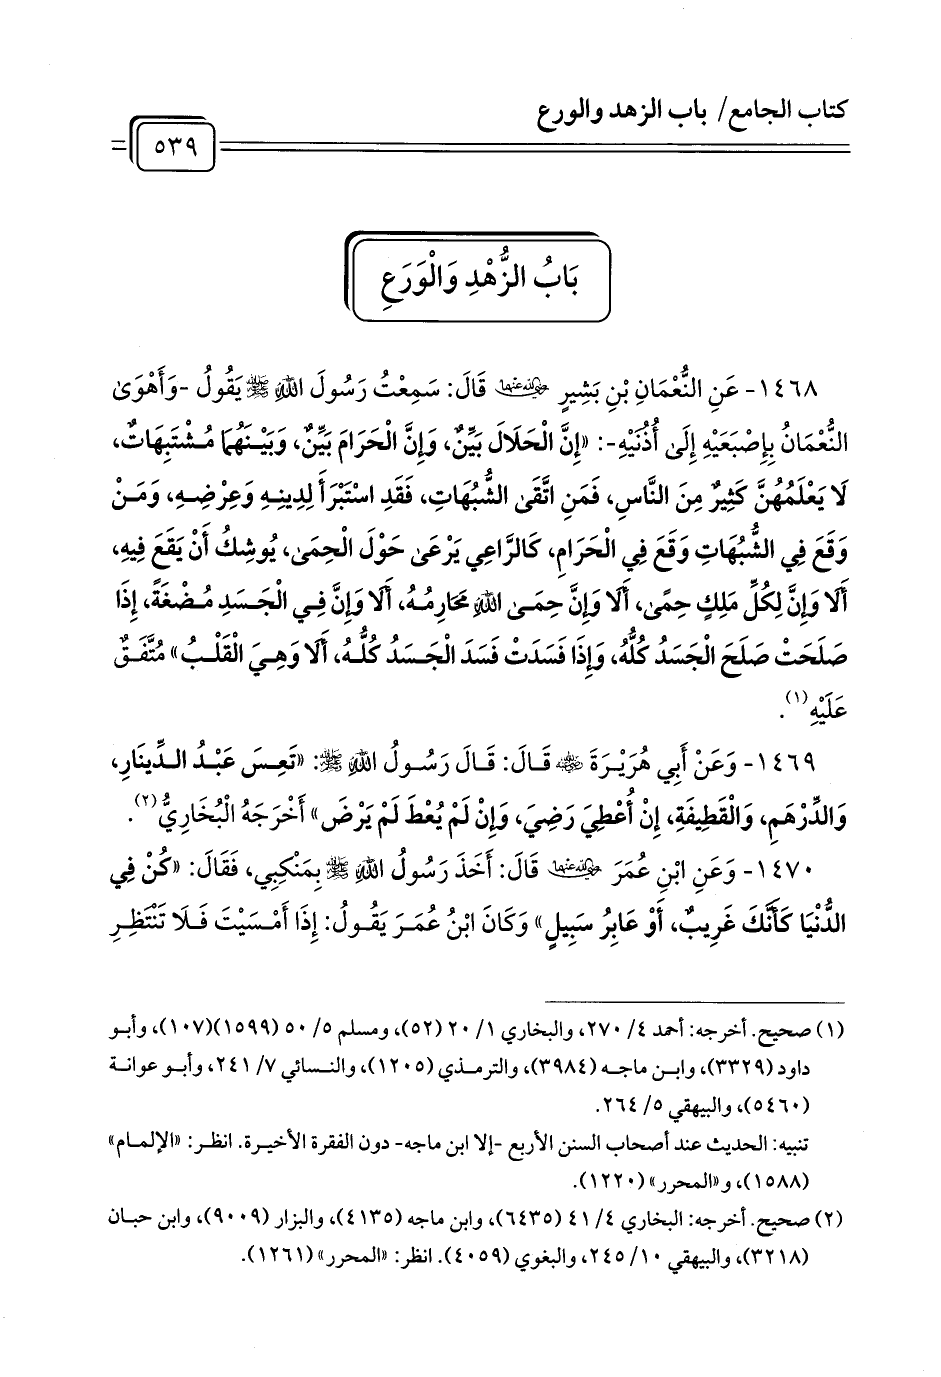 كتاب الجامع/ باب الزهد والورع
٥٣٩
بَابُ الزُّهْدِ وَالْوَرَعِ
١٤٦٨- عَنِ النُّعْمَانِ بْنِ بَشِيرٍ رضي الله عنهما قَالَ: سَمِعْتُ رَسُولَ اللهِ ﷺ يَقُولُ -وَأَهْوَىٰ
النُّعْمَانُ بِإِصْبَعَيْهِ إِلَىٰ أُذُنَيْهِ-: «إِنَّ الْحَلَالَ بَيِّنٌ، وَإِنَّ الْحَرَامَ بَيِّنٌ، وَبَيْنَهُمَا مُشْتَبِهَاتٌ،
لَا يَعْلَمُهُنَّ كَثِيرٌ مِنَ النَّاسِ، فَمَنِ اتَّقَىٰ الشُّبُهَاتِ، فَقَدِ اسْتَبْرَأَ لِدِينِهِ وَعِرْضِهِ، وَمَنْ
وَقَعَ فِي الشُّبُهَاتِ وَقَعَ فِي الْحَرَامِ، كَالرَّاعِي يَرْعَىٰ حَوْلَ الْحِمَىٰ، يُوشِكُ أَنْ يَقَعَ فِيهِ،
أَلَا وَإِنَّ لِكُلِّ مَلِكٍ حِمًى، أَلَا وَإِنَّ حِمَىٰ اللهِ مَحَارِمُهُ، أَلَا وَإِنَّ فِي الْجَسَدِ مُضْغَةً، إِذَا
صَلَحَتْ صَلَحَ الْجَسَدُ كُلُّهُ، وَإِذَا فَسَدَتْ فَسَدَ الْجَسَدُ كُلُّهُ، أَلَا وَهِيَ الْقَلْبُ» مُتَّفَقٌ
عَلَيْهِ(١).
١٤٦٩- وَعَنْ أَبِي هُرَيْرَةَ رضي الله عنه قَالَ: قَالَ رَسُولُ اللهِ ﷺ: «تَعِسَ عَبْدُ الدِّينَارِ،
وَالدِّرْهَمِ، وَالْقَطِيفَةِ، إِنْ أُعْطِيَ رَضِيَ، وَإِنْ لَمْ يُعْطَ لَمْ يَرْضَ» أَخْرَجَهُ الْبُخَارِيُّ(٢).
١٤٧٠- وَعَنِ ابْنِ عُمَرَ رضي الله عنهما قَالَ: أَخَذَ رَسُولُ اللهِ ﷺ بِمَنْكِبِي، فَقَالَ: «كُنْ فِي
الدُّنْيَا كَأَنَّكَ غَرِيبٌ، أَوْ عَابِرُ سَبِيلٍ» وَكَانَ ابْنُ عُمَرَ يَقُولُ: إِذَا أَمْسَيْتَ فَلَا تَنْتَظِرِ
(١) صحيح. أخرجه: أحمد ٤/ ٢٧٠، والبخاري ١/ ٢٠ (٥٢)، ومسلم ٥/ ٥٠ (١٥٩٩)(١٠٧)، وأبو
داود (٣٣٢٩)، وابن ماجه (٣٩٨٤)، والترمذي (١٢٠٥)، والنسائي ٧/ ٢٤١، وأبو عوانة
(٥٤٦٠)، والبيهقي ٥/ ٢٦٤.
تنبيه: الحديث عند أصحاب السنن الأربع -إلا ابن ماجه- دون الفقرة الأخيرة. انظر: «الإلمام»
(١٥٨٨)، و«المحرر» (١٢٢٠).
(٢) صحيح. أخرجه: البخاري ٤/ ٤١ (٦٤٣٥)، وابن ماجه (٤١٣٥)، والبزار (٩٠٠٩)، وابن حبان
(٣٢١٨)، والبيهقي ١٠/ ٢٤٥، والبغوي (٤٠٥٩). انظر: «المحرر» (١٢٦١).